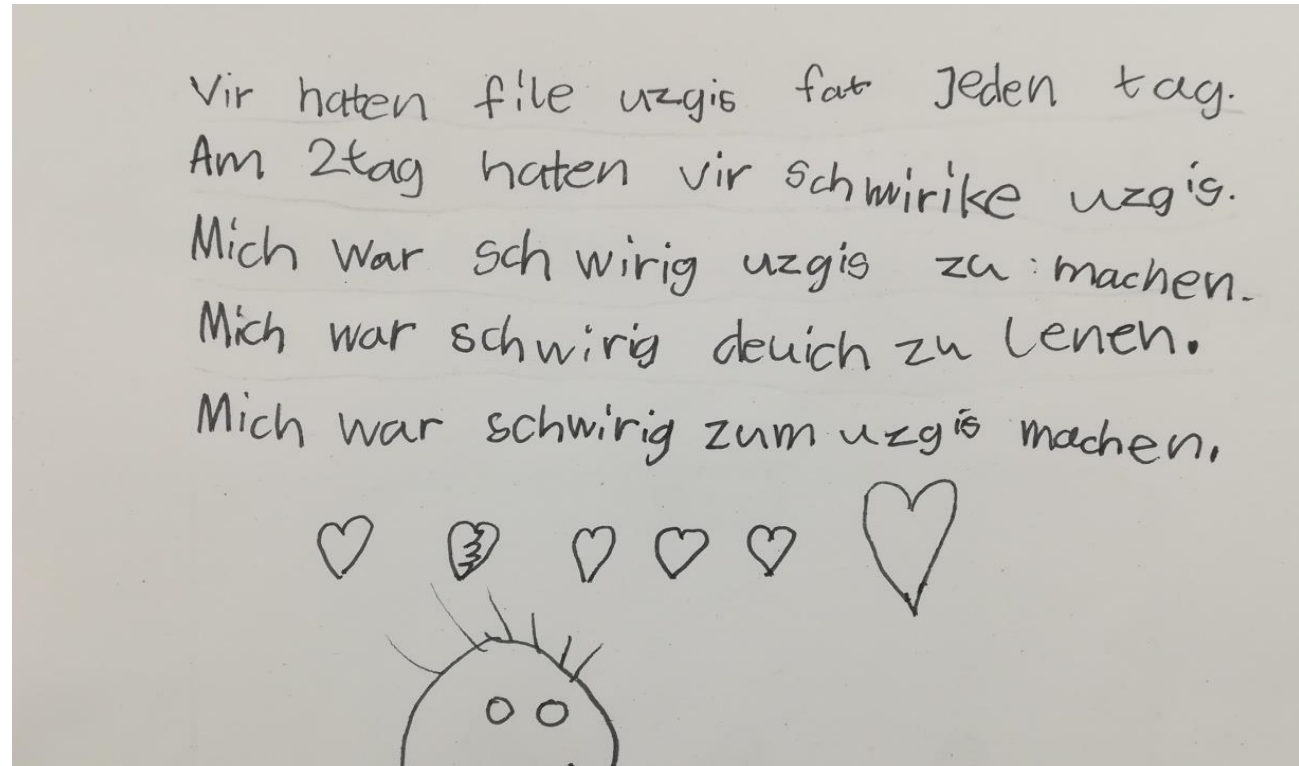 Vir haten file uzgis fat Jeden tag.
Am 2tag haten vir schwirike uzgis.
Mich war schwirig uzgis zu machen.
Mich war schwirig deuich zu lenen.
Mich war schwirig zum uzgis machen.